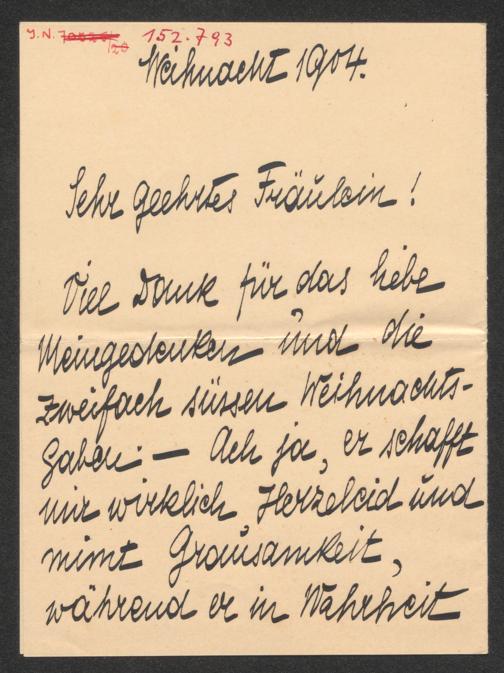 J.N. 152.793
Weihnacht 1904.
Sehr geehrtes Fräulein!
Viel Dank für das liebe
Meingedenken und die
zweifach süssen Weihnachts-
gaben. — Ach ja, er schafft
mir wirklich Herzeleid und
mimt Grausamkeit,
während er in Wahrheit